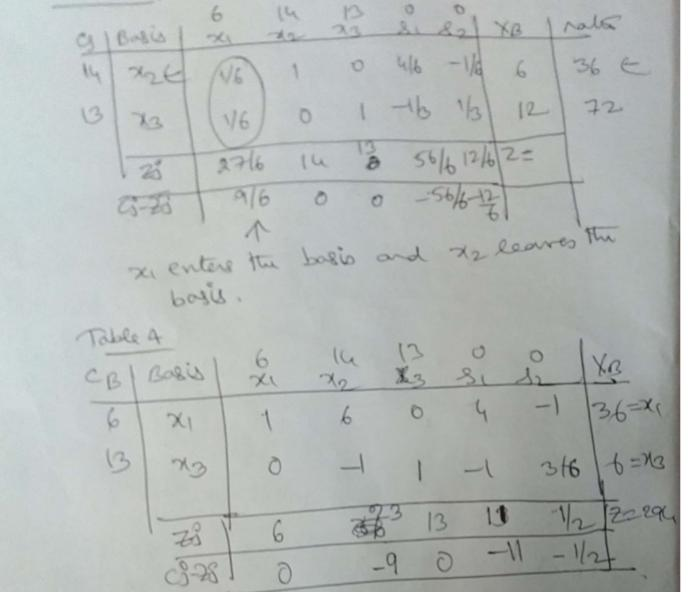 6 14 13 0 0
Cj Basis x1 x2 x3 s1 s2 XB ratio
14 x2← 1/6 1 0 4/6 -1/6 6 36 ←
13 x3 1/6 0 1 -1/3 1/3 12 72
Zj 27/6 14 13 56/6 12/6 Z=
Cj-Zj 9/6 0 0 -56/6 -12/6
↑
x1 enters the basis and x2 leaves the
basis.
Table 4
6 14 13 0 0
CB Basis x1 x2 x3 s1 s2 XB
6 x1 1 6 0 4 -1 36=x1
13 x3 0 -1 1 -1 3/6 6=x3
Zj 6 23 13 11 1/2 Z=294
Cj-Zj 0 -9 0 -11 -1/2